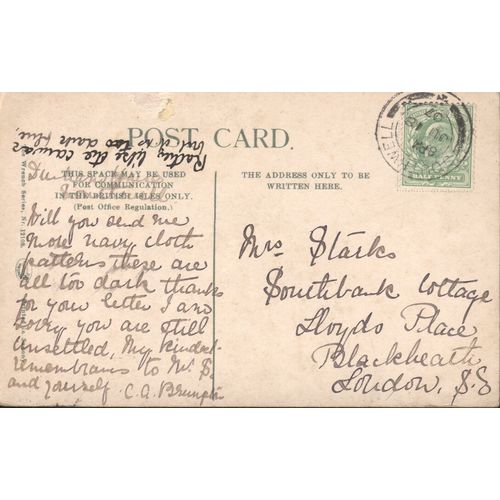 POST CARD.
THIS SPACE MAY BE USED
FOR COMMUNICATION
IN THE BRITISH ISLES ONLY.
(Post Office Regulation.)
THE ADDRESS ONLY TO BE
WRITTEN HERE.
HALF PENNY
WELL
Wrench Series, Nr.
Rather like the canvas
but not too dark blue
Will you send me
more navy cloth
patterns these are
all too dark thanks
for your letter I am
sorry you are still
unsettled, My kindest
remembrans to Mr. S
and yourself C. A.
Mrs Starks
Southbank Cottage
Lloyds Place
Blackheath
London, S.E